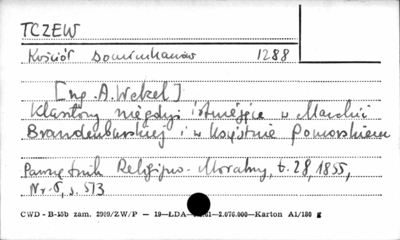 TCZEW
Kościół Dominikanów 1288
[Wg. A. Wetzel]
Klasztory niegdyś istniejące w Marchii
Brandenburskiej i w Księstwie Pomorskiem
Pamiętnik Religijno-Moralny, t. 28, 1855,
Nr. 5, s. 513
CWD - B-15b zam. 2909/ZW/P — 19—LDA— -2.076.000—Karton A1/180 g